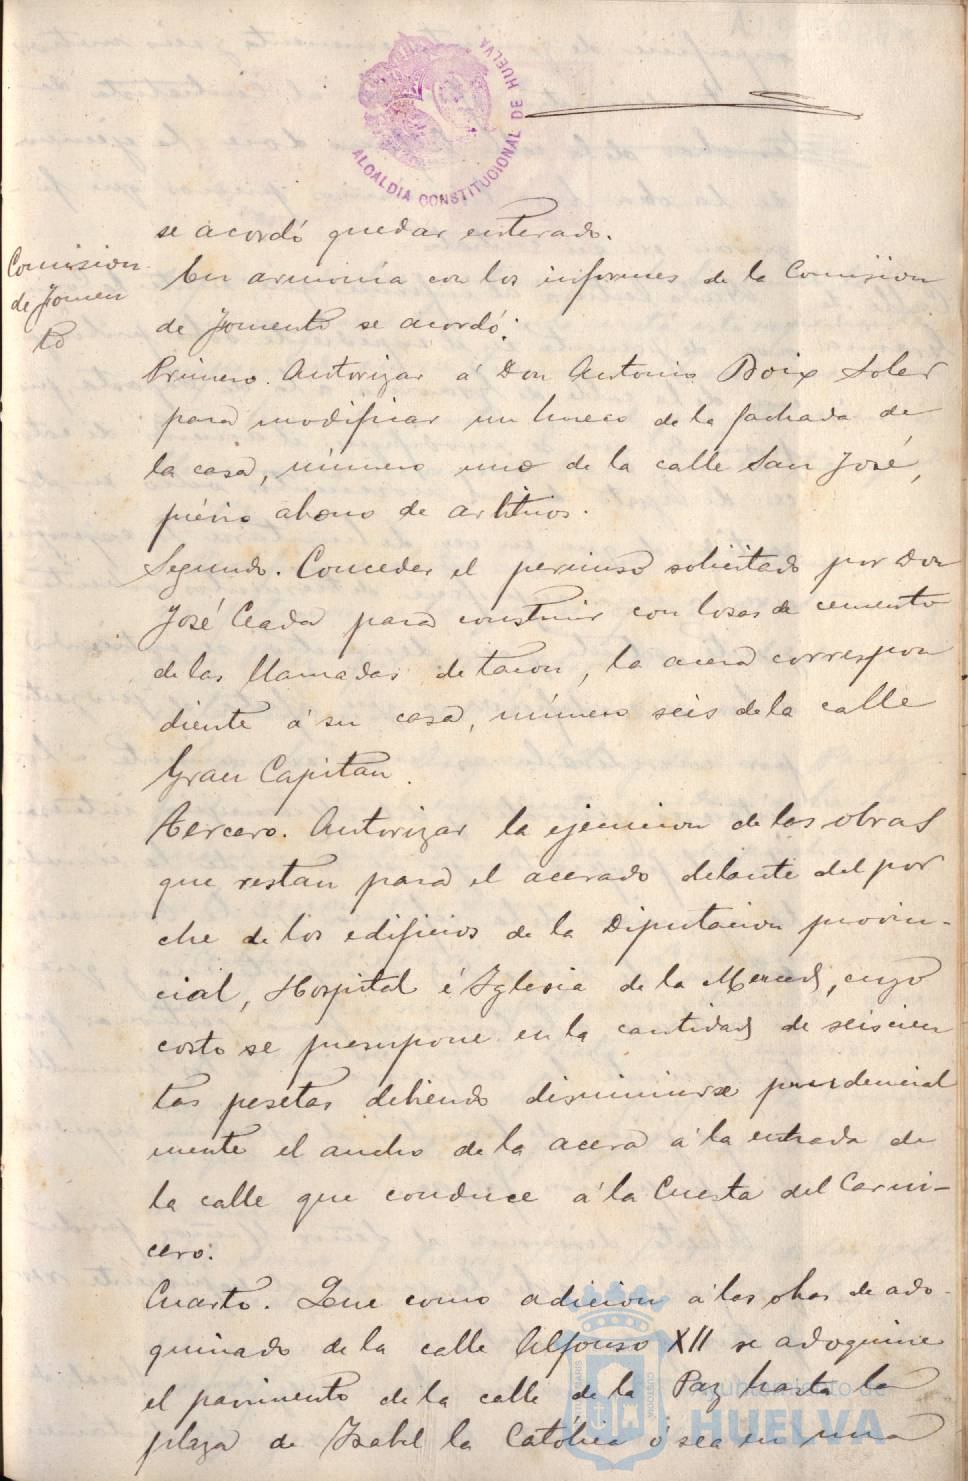 ALCALDIA CONSTITUCIONAL DE HUELVA
se acordó quedar enterado.
Comision
de Fomen
to
En armonía con los informes de la Comision
de Fomento se acordó:
Primero. Autorizar á Don Antonio Boix Soler
para modificar un hueco de la fachada de
la casa, número uno de la calle San José,
prévio abono de arbitrios.
Segundo. Conceder el permiso solicitado por Don
José Ceada para construir con losas de cemento
de las llamadas de tacon, la acera correspon
diente á su casa, número seis de la calle
Gran Capitan.
Tercero. Autorizar la ejecucion de las obras
que restan para el acerado delante del por
che de los edificios de la Diputacion provin-
cial, Hospital é Iglesia de la Merced, cuyo
costo se presupone en la cantidad de seiscien
tas pesetas debiendo disminuirse prudencial
mente el ancho de la acera á la entrada de
la calle que conduce á la Cuesta del Carni-
cero.
Cuarto. Que como adicion á las obras de ado-
quinado de la calle Alfonso XII se adoquine
el pavimento de la calle de la Paz hasta la
plaza de Isabel la Católica ó sea en una
Ayuntamiento de
HUELVA